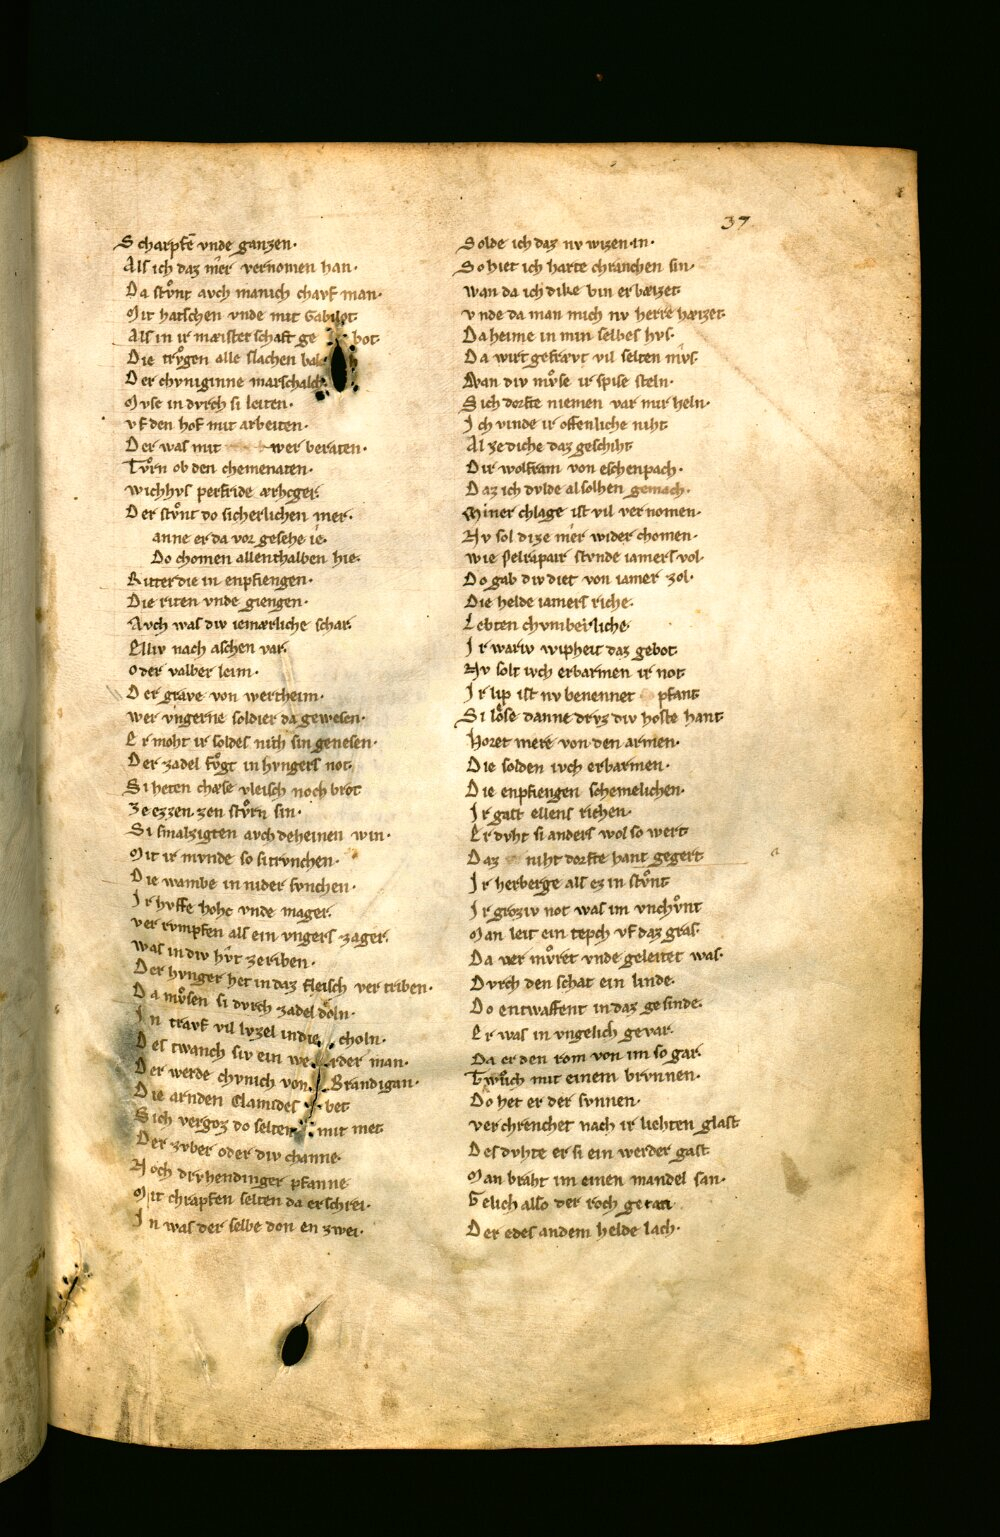 37
Scharpfē vnde ganzen·
Als ich daz mer vernomen han·
Da stv̊nt avch manich charf man·
Mit hatschen vnde mit Gabilot
Als in ir mæisterschaft ge bot
Die trv̊gen alle slachen bal
Der chvniginne marschalch
Mvse in dvrch si leiten·
vf den hof mit arbeiten·
Der was mit wer beraten·
Tv̊rn ob den chemenaten·
wichhvs perfride ærhcger
Der stv̊nt do sicherlichen mer·
anne er da vor gesehe ie·
Do chomen allenthalben hie·
Ritter die in enpfiengen·
Die riten vnde giengen·
Avch was div iemærliche schar
Elliv nach aschen var
oder valber leim·
Der grave von wertheim·
wer vngerne soldier da gewesen·
Er moht ir soldes niht sin genesen·
Der zadel fv̊gt in hvngers not
Si heten chæse vleisch noch brot
Ze ezzen zen stv̊rn sin·
Si smalzigten avch deheinen win·
Mit ir mvnde so si trvnchen·
Die wambe in nider svnchen·
Ir hvffe hohe vnde mager
ver rvmpfen als ein vngers zager
was in div hv̂t ze riben·
Der hvnger het in daz fleisch ver triben·
Da mv̊sen si dvrch zadel doln·
In travf vil lvzel in die choln·
Des twanch siv ein we rder man·
Der werde chvnich von Brandigan·
Die arnden Clamides bet
Sich vergoz do selten mit met
Der zvber oder div channe·
Noch drvhendinger pfanne
Mit chrapfen selten da erschrei·
In was der selbe don en zwei·
Solde ich daz nv wizen in·
So hiet ich harte chranchen sin·
wan da ich dike bin erbæizet
vnde da man mich nv herre hæizet
Da heime in min selbes hvs·
Da wirt gefrævt vil selten mvs·
wan div mv̊se ir spise steln·
Sich dorfte niemen var mir heln·
Ich vinde ir offenliche niht
Al ze diche daz geschiht
Dir wolfram von eschenpach·
Daz ich dvlde al solhen gemach·
Miner chlage ist vil vernomen·
Nv sol dize mer wider chomen·
wie pelrapair stvnde iamers vol·
Do gab div diet von iamer zol·
Die helde iamers riche·
Lebten chvmberliche
Ir wariv wipheit daz gebot
Nv solt ivch erbarmen ir not
Ir lip ist nv benennet pfant
Si lo̊se danne drvz div hoste hant
Horet mere von den armen·
Die solden ivch erbarmen·
Die enpfiengen schemelichen·
Ir gast ellens richen·
Er dvht si anders wol so wert
Daz niht dorfte hant gegert
Ir herberge als ez in stv̊nt
Ir groziv not was im vnchv̊nt
Man leit ein tepch vf daz gras·
Da ver mv̊ret vnde geleitet was·
Dvrch den schat ein linde·
Do entwaffent in daz gesinde·
Er was in vngelich gevar·
Da er den rom von im so gar
Twv̊ch mit einem brvnnen·
Do het er der svnnen·
ver chrenchet nach ir liehten glast
Des dvhte er si ein werder gast
Man braht im einen mandel san·
Gelich also der roch getan
Der edes an dem helde lach·